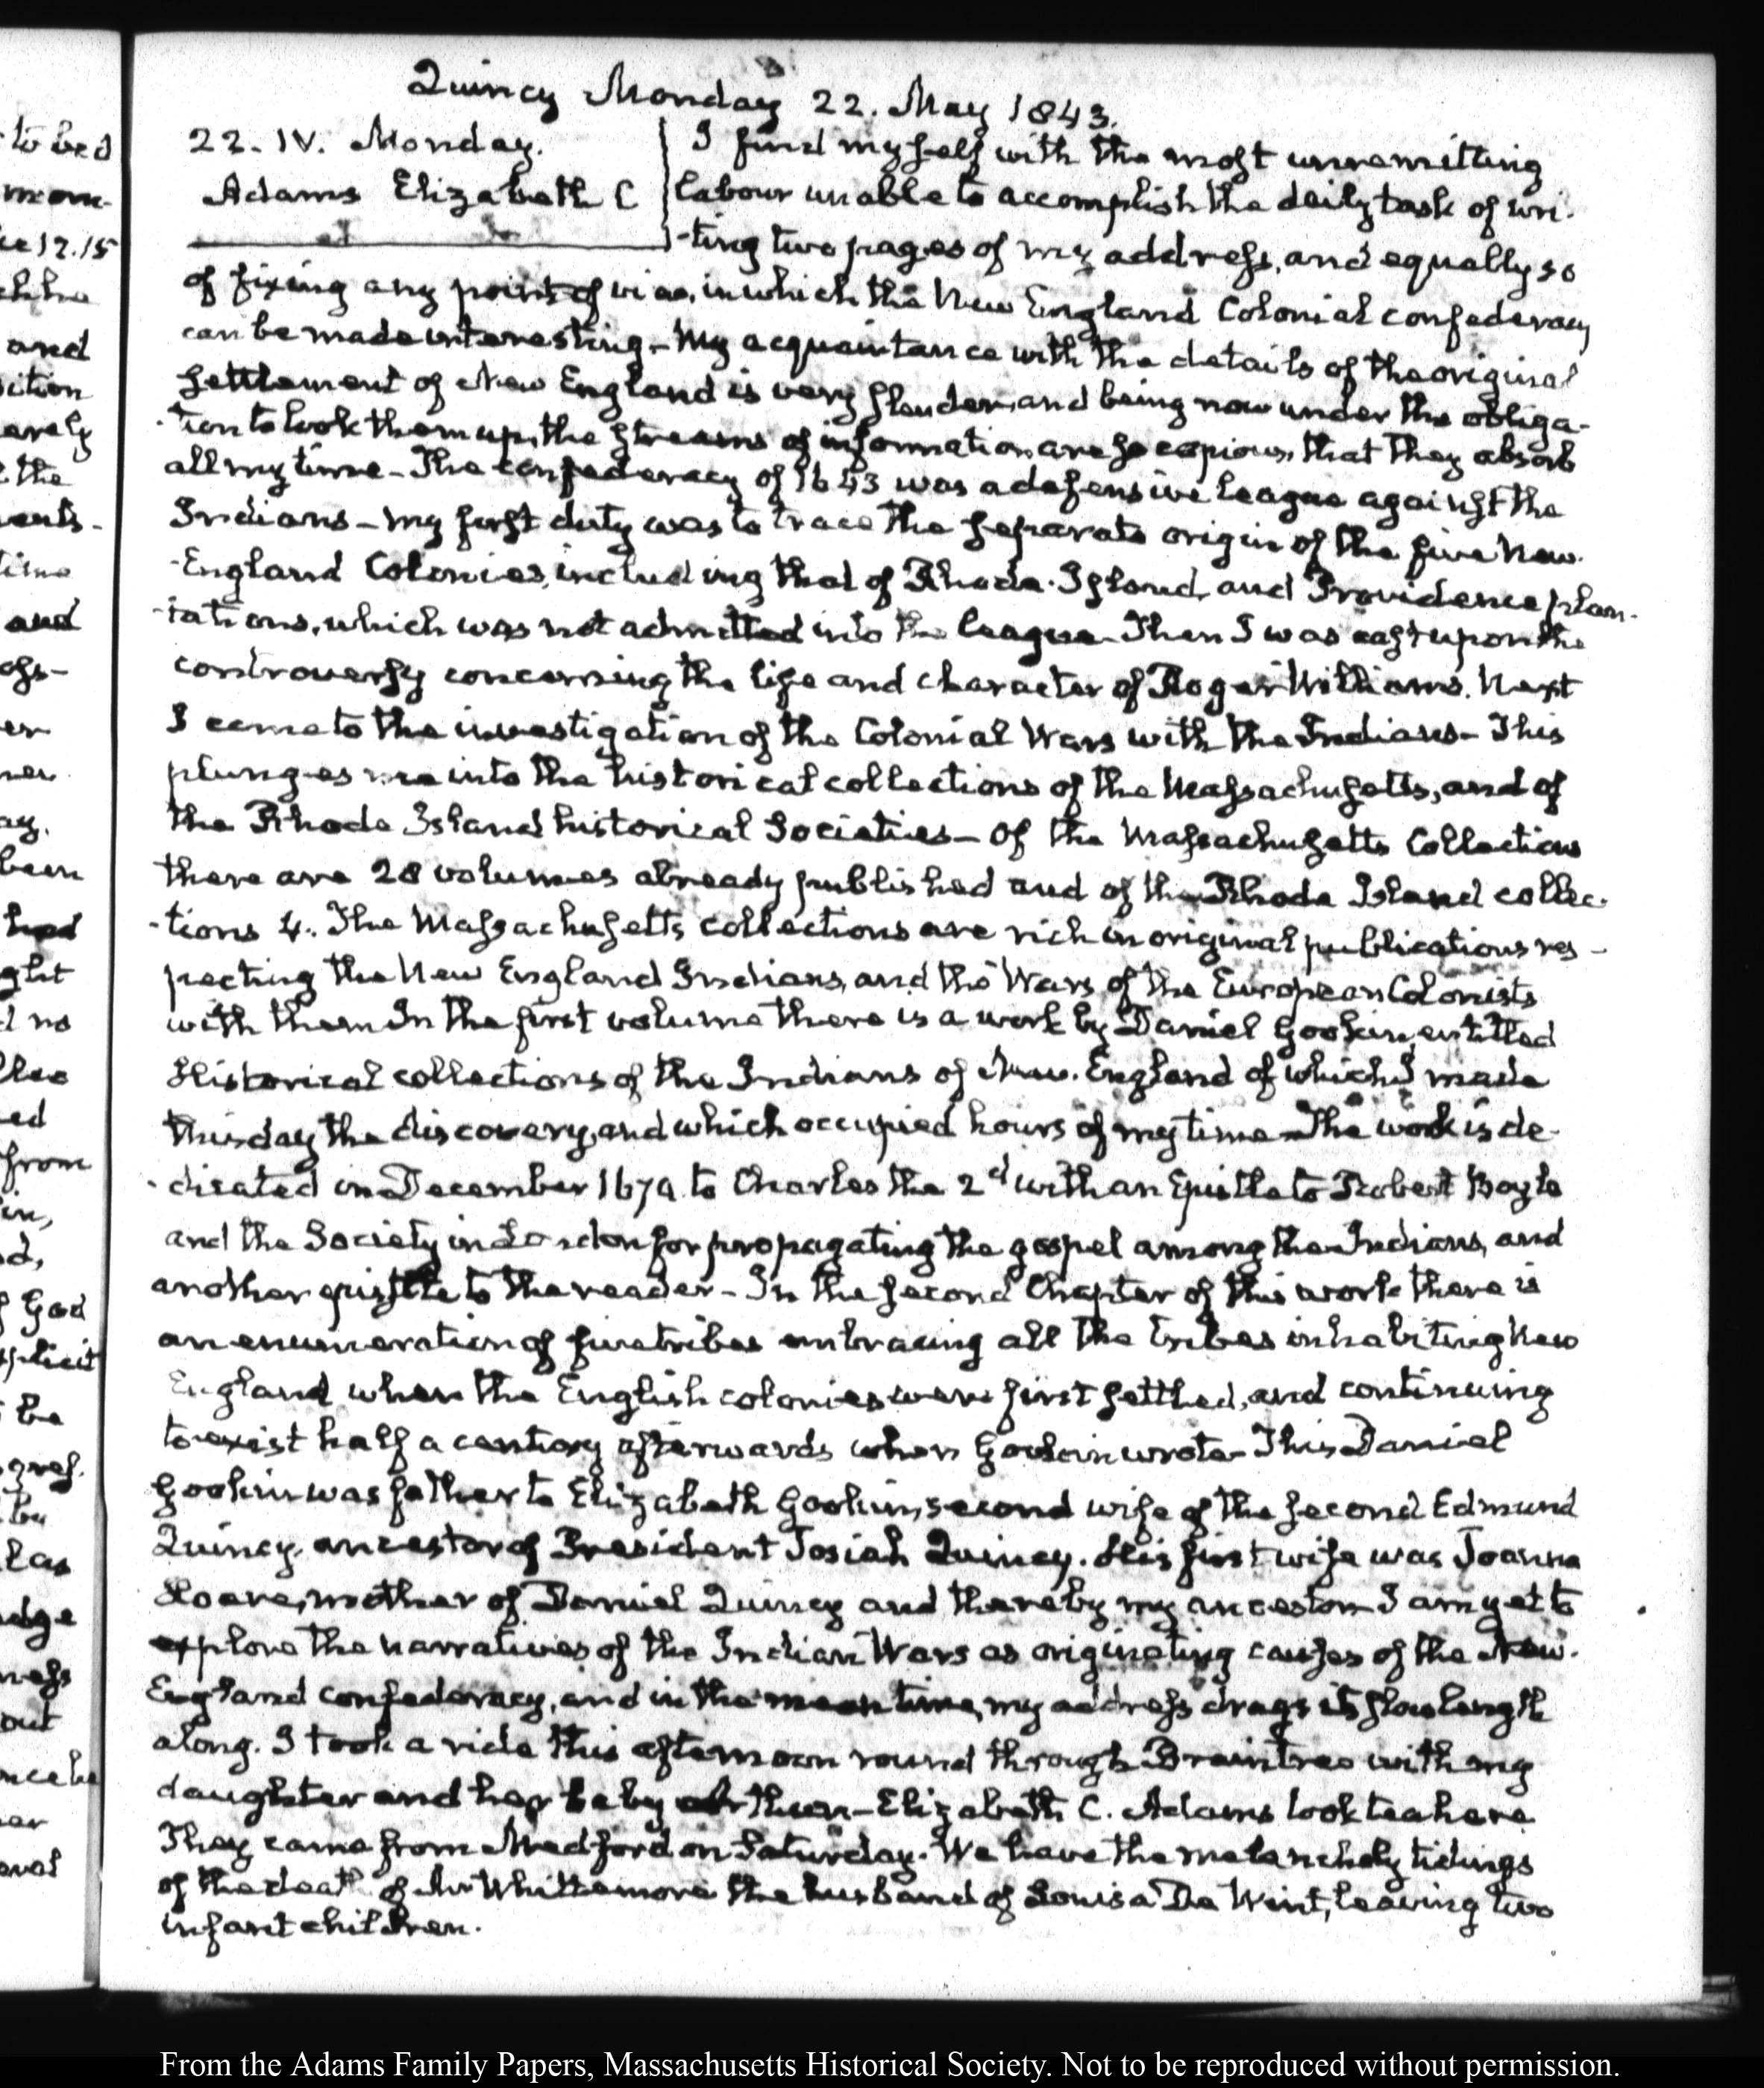 Quincy Monday 22. May 1843.
22. IV. Monday.
Adams Elizabeth C
I find myself with the most unremitting
labour unable to accomplish the daily task of wri-
-ting two pages of my address, and equally so
of fixing any point of view, in which the New England Colonial confederacy
can be made interesting - My acquaintance with the details of the original
settlement of New England is very slender, and being now under the obliga-
-tion to look them up, the streams of information are so copious, that they absorb
all my time - The confederacy of 1643 was a defensive league against the
Indians - my first duty was to trace the separate origin of the five New-
-England Colonies, including that of Rhode-Island, and Providence plan-
-tations, which was not admitted into the league - Then I was cast upon the
controversy concerning the life and character of Roger Williams. Next
I came to the investigation of the Colonial Wars with the Indians - This
plunges me into the historical collections of the Massachusetts, and of
the Rhode Island historical Societies - Of the Massachusetts Collections
there are 28 volumes already published and of the Rhode Island collec-
-tions 4. The Massachusetts collections are rich in original publications res-
pecting the New England Indians, and the Wars of the European Colonists
with them In the first volume there is a work by Daniel Gookin, entitled
Historical collections of the Indians of New-England of which I made
this day the discovery, and which occupied hours of my time - The work is de-
-dicated in December 1674 to Charles the 2d with an Epistle to Robert Boyle
and the Society in London for propagating the gospel among the Indians, and
another epistle to the reader - In the second Chapter of this work there is
an enumeration of five tribes embracing all the tribes inhabiting New
England when the English colonies were first settled, and continuing
to exist half a century afterwards when Gookin wrote - This Daniel
Gookin was father to Elizabeth Gookin, second wife of the second Edmund
Quincy, ancestor of President Josiah Quincy. His first wife was Joanna
Hoare, mother of Daniel Quincy and thereby my ancestor - I am yet to
explore the narratives of the Indian Wars as originating causes of the New-
England confederacy, and in the mean time, my address drags its slow length
along. I took a ride this afternoon round through Braintree with my
daughter and her baby Arthur - Elizabeth C. Adams took tea here
They came from Medford on Saturday. We have the melancholy tidings
of the death of Mr Whittemore the husband of Louisa De Wint, leaving two
infant children.
From the Adams Family Papers, Massachusetts Historical Society. Not to be reproduced without permission.